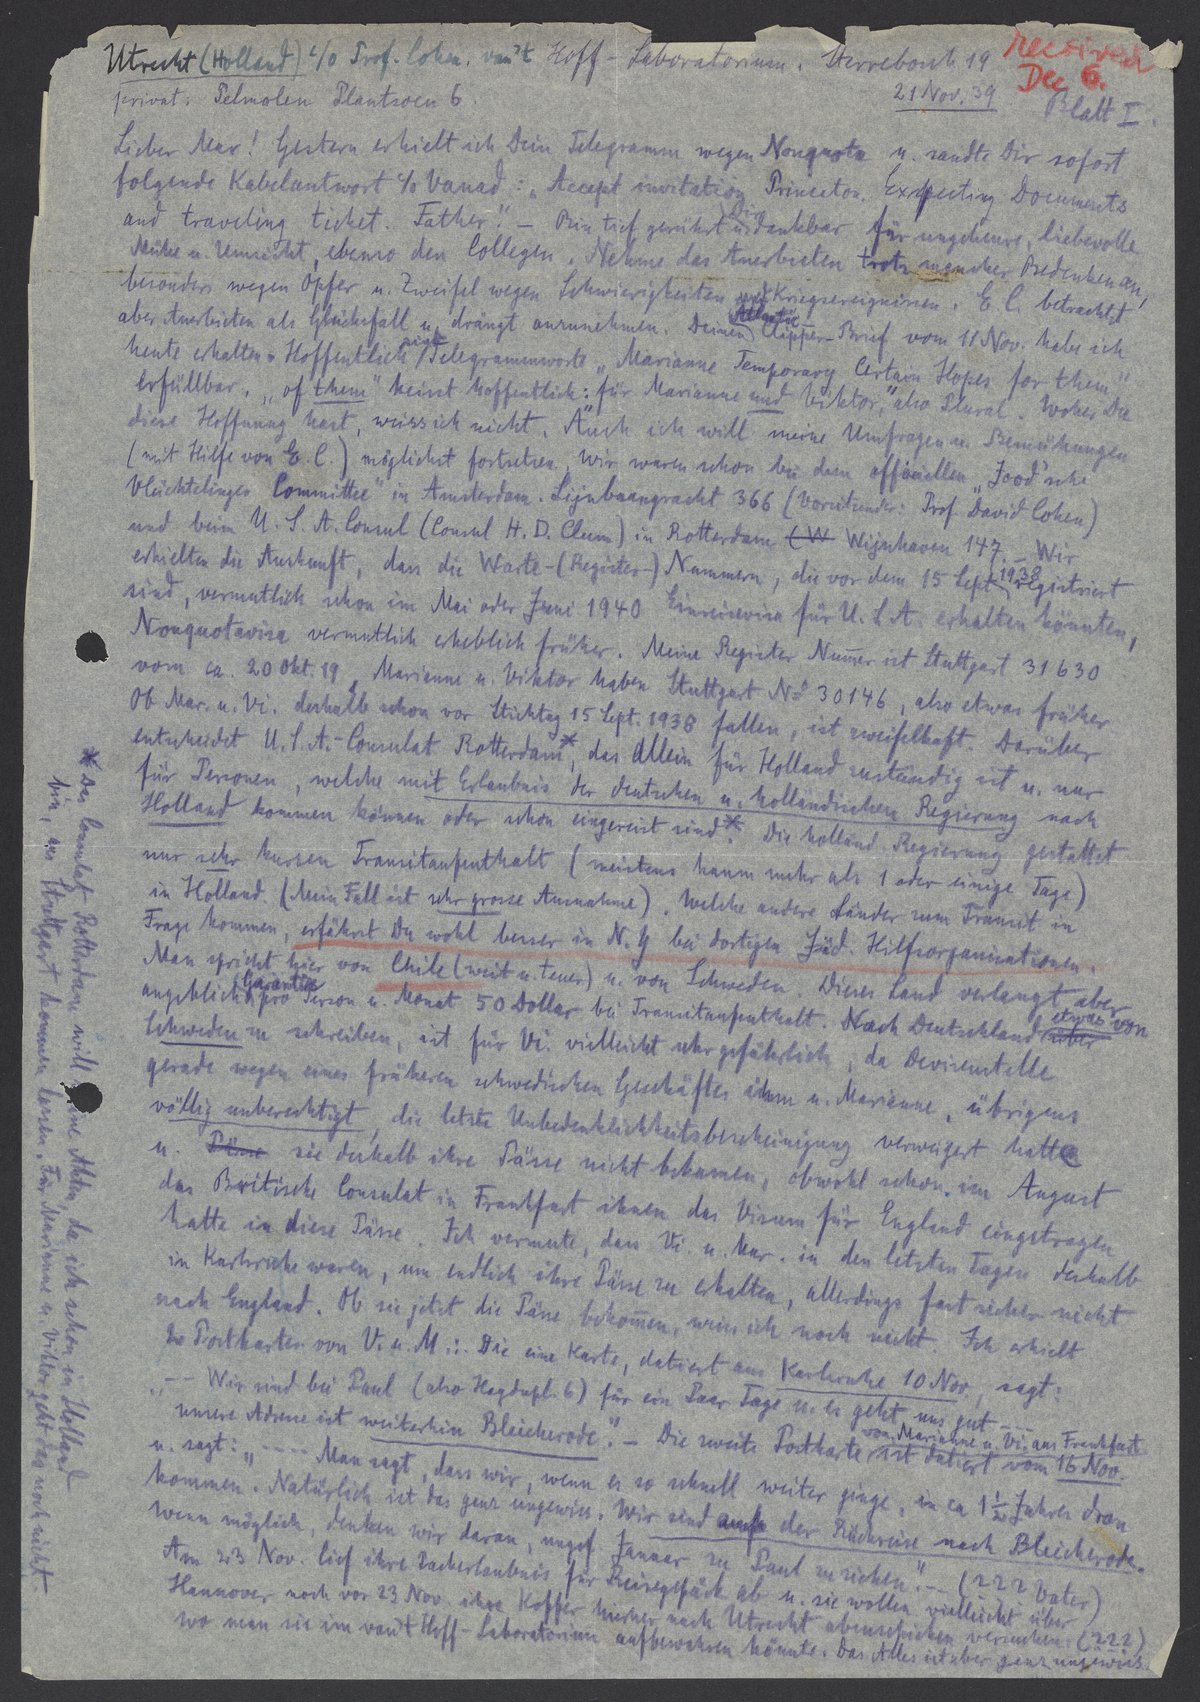 Utrecht (Holland) c/o Prof. Cohen. van't Hoff-Laboratorium. Sterrebosch 19
received
Dec 6.
privat: Pelmolen Plantsoen 6.
21 Nov. 39
Blatt I.
Lieber Max! Gestern erhielt ich Dein Telegramm wegen Nonquota u. sandte Dir sofort
folgende Kabelantwort c/o Vanad: „Accept invitation Princeton. Expecting Documents
and traveling ticket. Father." – Bin tief gerührt u. Dir dankbar für ungeheure, liebevolle
Mühe u. Umsicht, ebenso den Collegen. Nehme das Anerbieten trotz mancher Bedenken an,
besonders wegen Opfer u. Zweifel wegen Schwierigkeiten u. Kriegsereignissen. E. C. betrachtet
aber Anerbieten als Glücksfall u. drängt anzunehmen. Deinen Atlantic Clipper-Brief vom 11 Nov. habe ich
heute erhalten. Hoffentlich sind Telegrammworte „Marianne Temporary Certain Hopes for them"
erfüllbar. „of them" heisst hoffentlich: für Marianne und Viktor, also Plural. Woher Du
diese Hoffnung hast, weiss ich nicht. Auch ich will meine Umfragen u. Bemühungen
(mit Hilfe von E. C.) möglichst fortsetzen. Wir waren schon bei dem offiziellen „Jood'sche
Vluchtelingen Committee" in Amsterdam. Lijnbaansgracht 366 (Vorsitzender: Prof David Cohen)
und beim U. S. A. Consul (Consul H. D. Clum) in Rotterdam (W Wijnhaven 147. – Wir
erhielten die Auskunft, dass die Warte-(Register-) Nummern, die vor dem 15 Sept. 1938 registriert
sind, vermutlich schon im Mai oder Juni 1940 Einreisevisa für U. S. A. erhalten könnten,
Nonquotavisa vermutlich erheblich früher. Meine Register Nummer ist Stuttgart 31630
vom ca. 20 Okt. 19, Marianne u. Viktor haben Stuttgart No 30146, also etwas früher
Ob Mar. u. Vi. deshalb schon vor Stichtag 15 Sept. 1938 fallen, ist zweifelhaft. Darüber
entscheidet U. S. A.-Consulat Rotterdam*, das allein für Holland zuständig ist u. nur
für Personen, welche mit Erlaubnis der deutschen u. holländischen Regierung nach
Holland kommen können oder schon eingereist sind*. Die holländ. Regierung gestattet
nur sehr kurzen Transitaufenthalt (meistens kaum mehr als 1 oder einige Tage)
in Holland. (Mein Fall ist sehr grosse Ausnahme). Welche andere Länder zum Transit in
Frage kommen, erfährst Du wohl besser in N. Y bei dortigen Jüd. Hilfsorganisationen.
Man spricht hier von Chile (weit u. teuer) u. von Schweden. Dieses Land verlangt aber
angeblich Garantie pro Person u. Monat 50 Dollar bei Transitaufenthalt. Nach Deutschland über etwas von
Schweden zu schreiben, ist für Vi. vielleicht sehr gefährlich, da Devisenstelle
gerade wegen eines früheren schwedischen Geschäftes ihm u. Marianne, übrigens
völlig unberechtigt, die letzte Unbedenklichkeitsbescheinigung verweigert hatte
u. Pässe sie deshalb ihre Pässe nicht bekamen, obwohl schon im August
das Britische Consulat in Frankfurt ihnen das Visum für England eingetragen
hatte in diese Pässe. Ich vermute, dass Vi. u. Mar. in den letzten Tagen deshalb
in Karlsruhe waren, um endlich ihre Pässe zu erhalten, allerdings fast sicher nicht
nach England. Ob sie jetzt die Pässe bekommen, weiss ich noch nicht. Ich erhielt
2 Postkarten von V. u. M.: Die eine Karte, datiert aus Karlsruhe 10 Nov, sagt:
„-- Wir sind bei Paul (also Haydnpl. 6) für ein Paar Tage u. es geht uns gut ---
unsere Adresse ist weiterhin Bleicherode". – Die zweite Postkarte von Marianne u. Vi. aus Frankfurt ist datiert vom 16 Nov.
u. sagt: „---- Man sagt, dass wir, wenn es so schnell weiter ginge, in ca 1½ Jahren dran
kommen. Natürlich ist das ganz ungewiss. Wir sind auf der Rückreise nach Bleicherode.
wenn möglich, denken wir daran, ungef. Januar zu Paul zu ziehen." – (??? Vater)
Am 23 Nov. lief ihre Packerlaubnis für Reisegepäck ab u. sie wollen vielleicht über
Hannover noch vor 23 Nov. ihre Koffer hierher nach Utrecht abzuschicken versuchen. (???)
wo man sie im van't Hoff-Laboratorium aufbewahren könnte. Das Alles ist aber ganz ungewiss.
* Das Consulat Rotterdam will meine Akten, da ich schon in Holland
bin, aus Stuttgart kommen lassen. Für Marianne u. Viktor geht das noch nicht.